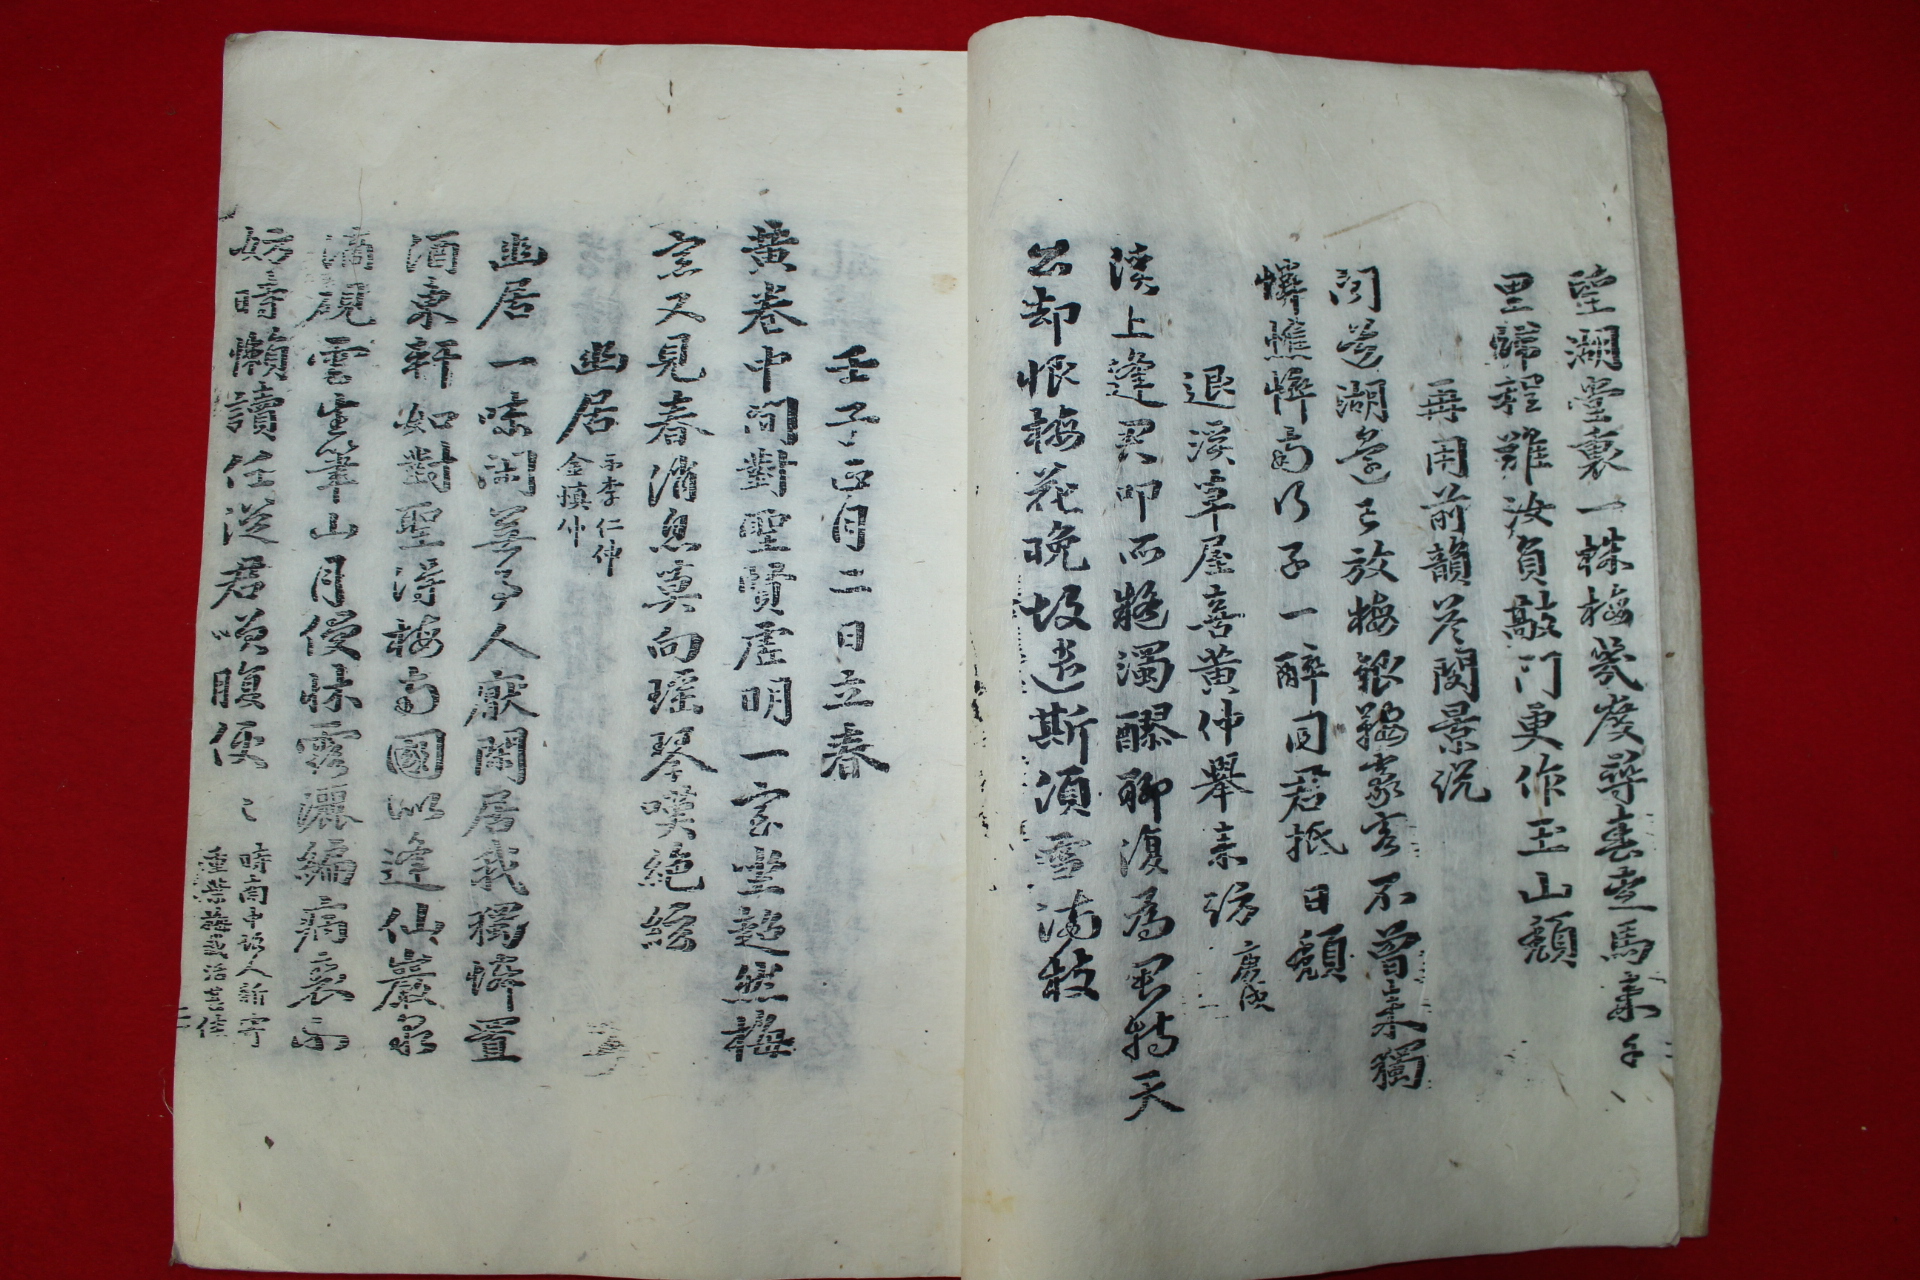 望湖堂裏一株梅幾度尋春走馬來千
里歸程難汝負敲門更作玉山頹
再用前韻答閔景說
聞道湖邊已放梅銀鞍豪客不曾來獨
憐憔悴南行子一醉同君抵日頹
退溪草屋喜黃仲舉來訪 庚戌
溪上逢君叩所疑濁醪聊復爲君持天
公却恨梅花晚故遣斯須雪滿枝
壬子正月二日立春
黃卷中間對聖賢虛明一室坐超然梅
窓又見春消息莫向瑤琴嘆絕絃
幽居 示李仁仲
金愼仲
幽居一味閑無事人厭閑居我獨憐置
酒東軒如對聖得梅南國似逢仙巖泉
滴硯雲生筆山月侵牀露灑編病裏不
妨時懶讀任從君笑腹便〻
時南中故人新寄
重葉梅盛活甚佳